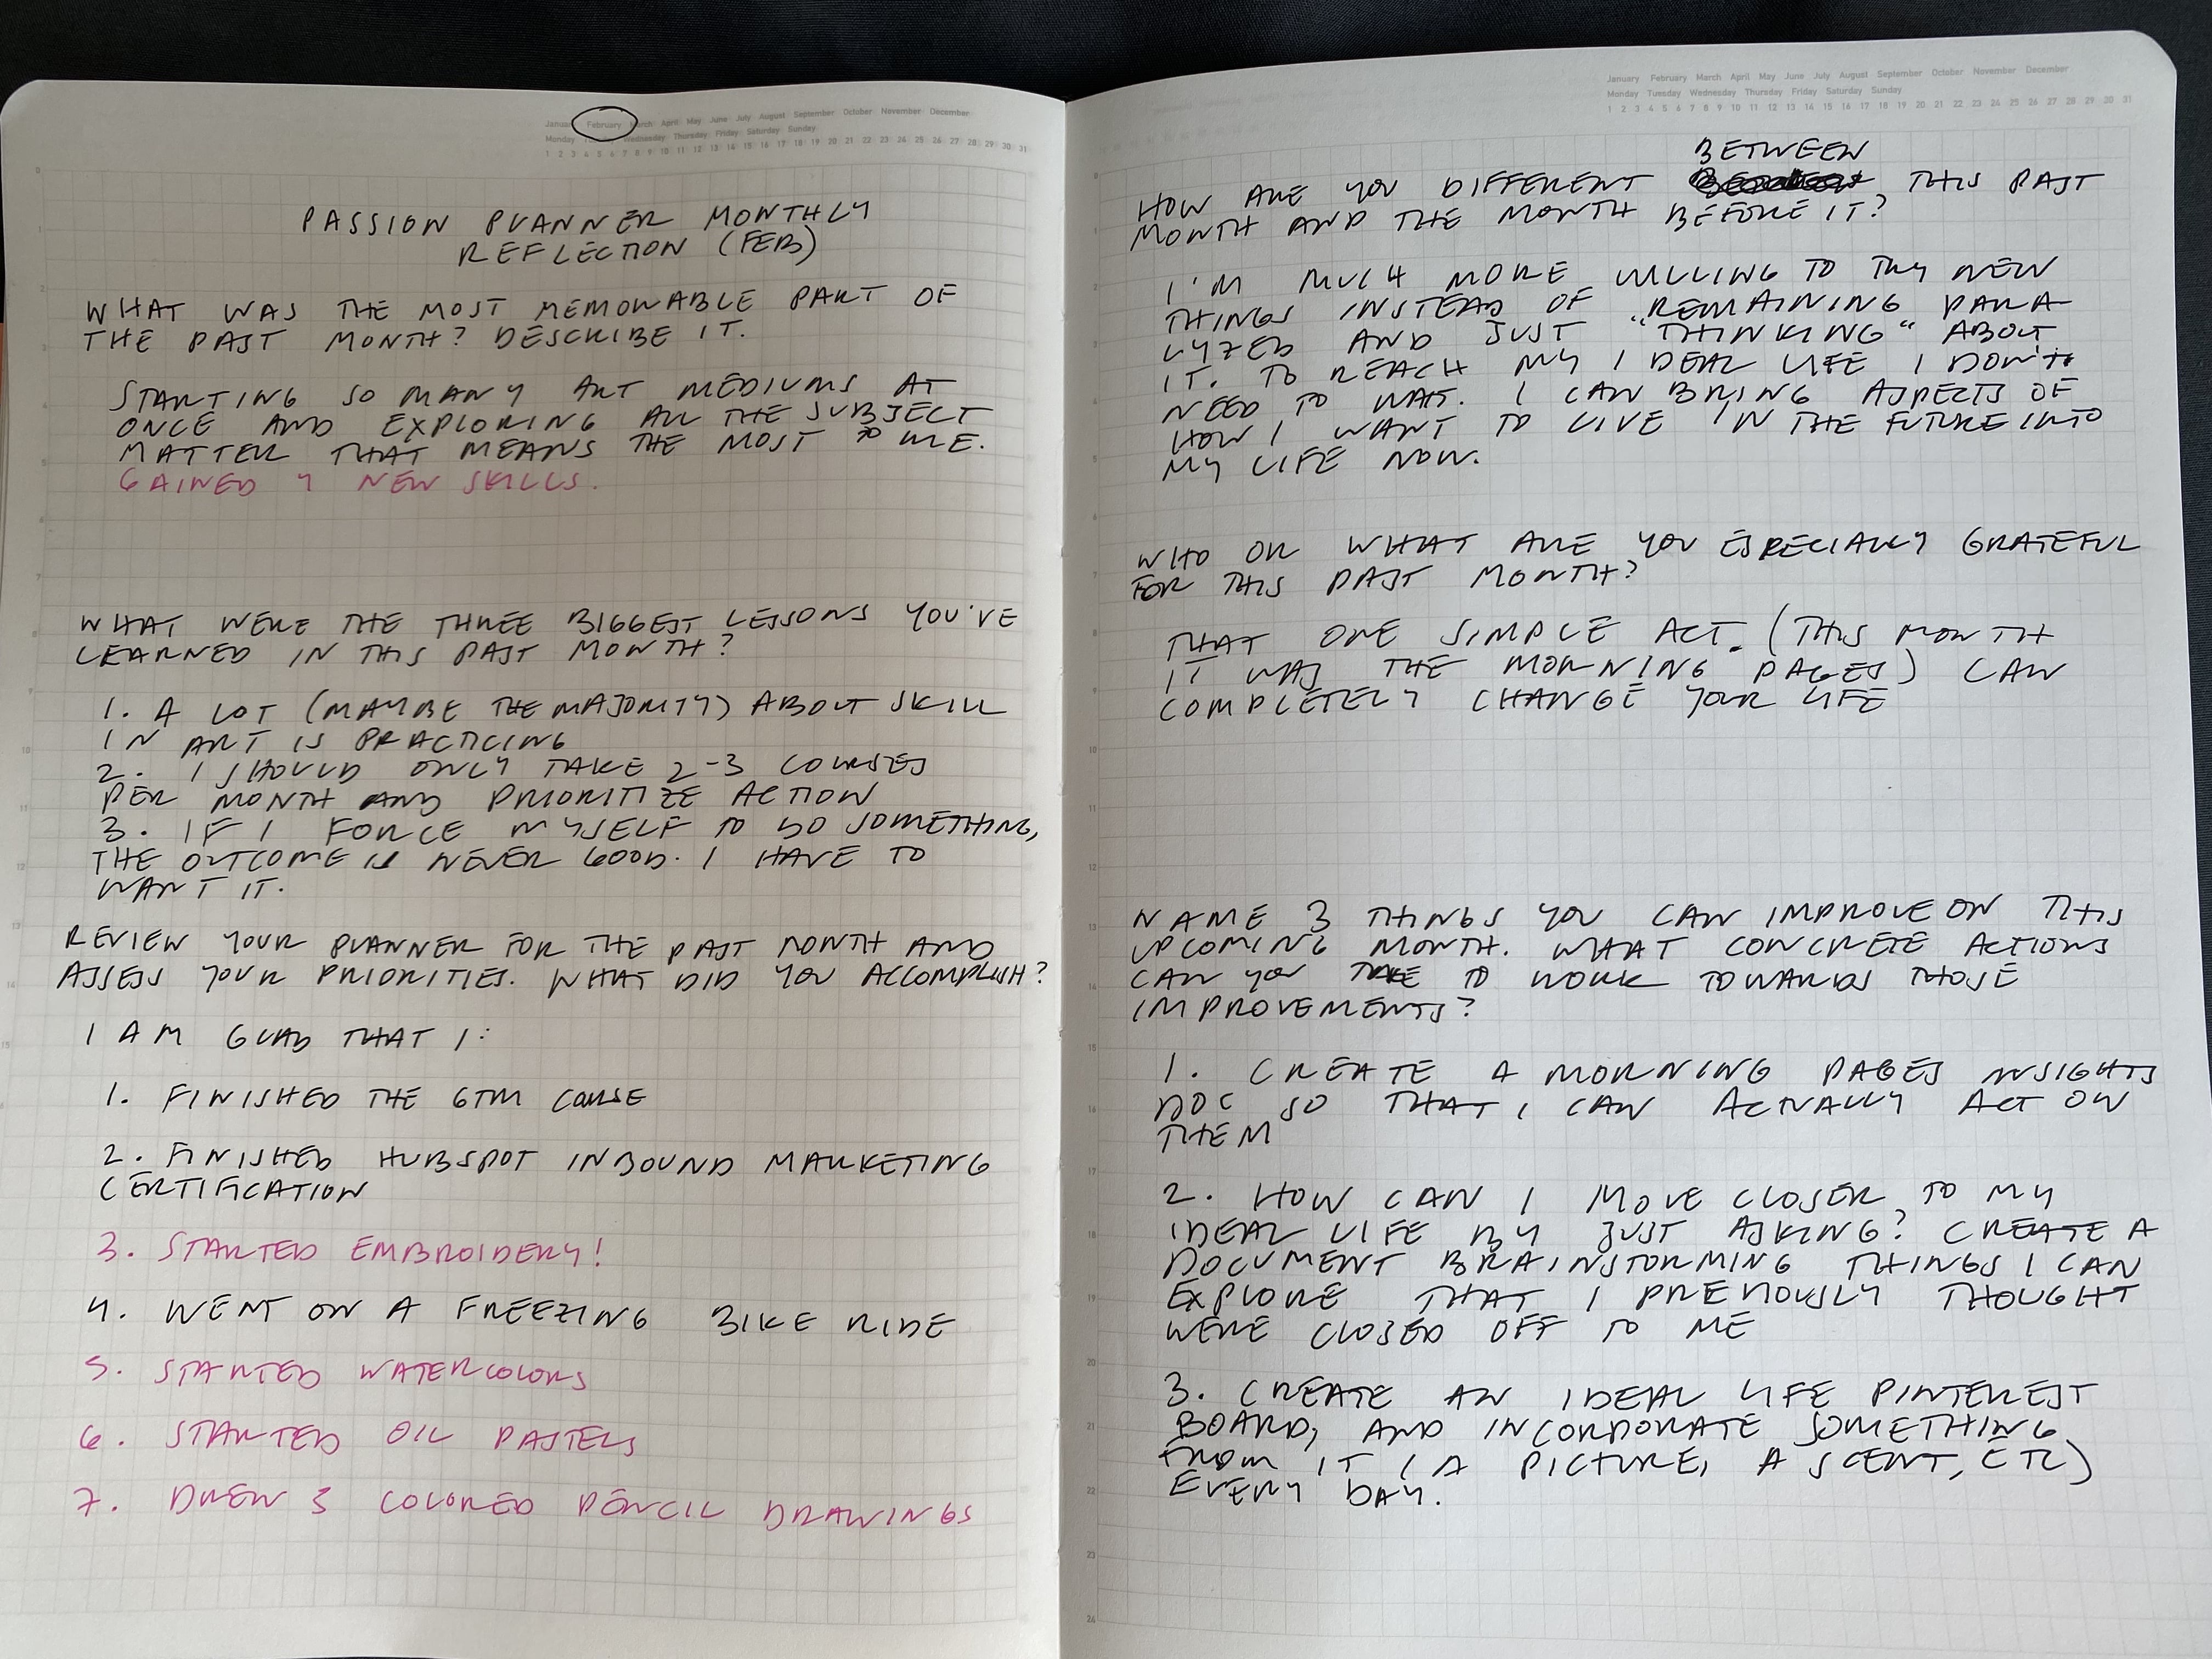 January February March April May June July August September October November December
Monday Wednesday Thursday Friday Saturday Sunday
1 2 3 4 5 6 7 8 9 10 11 12 13 14 15 16 17 18 19 20 21 22 23 24 25 26 27 28 29 30 31
PASSION PLANNER MONTHLY
REFLECTION (FEB)
WHAT WAS THE MOST MEMORABLE PART OF
THE PAST MONTH? DESCRIBE IT.
STARTING SO MANY ART MEDIUMS AT
ONCE AND EXPLORING ALL THE SUBJECT
MATTER THAT MEANS THE MOST TO ME.
GAINED 4 NEW SKILLS.
WHAT WERE THE THREE BIGGEST LESSONS YOU'VE
LEARNED IN THIS PAST MONTH?
1. A LOT (MAYBE THE MAJORITY) ABOUT SKILL
IN ART IS PRACTICING
2. I SHOULD ONLY TAKE 2-3 COURSES
PER MONTH AND PRIORITIZE ACTION
3. IF I FORCE MYSELF TO DO SOMETHING,
THE OUTCOME IS NEVER GOOD. I HAVE TO
WANT IT.
REVIEW YOUR PLANNER FOR THE PAST MONTH AND
ASSESS YOUR PRIORITIES. WHAT DID YOU ACCOMPLISH?
I AM GLAD THAT I:
1. FINISHED THE GTM COURSE
2. FINISHED HUBSPOT INBOUND MARKETING
CERTIFICATION
3. STARTED EMBROIDERY!
4. WENT ON A FREEZING BIKE RIDE
5. STARTED WATERCOLORS
6. STARTED OIL PASTELS
7. DREW 3 COLORED PENCIL DRAWINGS
January February March April May June July August September October November December
Monday Tuesday Wednesday Thursday Friday Saturday Sunday
1 2 3 4 5 6 7 8 9 10 11 12 13 14 15 16 17 18 19 20 21 22 23 24 25 26 27 28 29 30 31
BETWEEN
HOW ARE YOU DIFFERENT THIS PAST
MONTH AND THE MONTH BEFORE IT?
I'M MUCH MORE WILLING TO TRY NEW
THINGS INSTEAD OF REMAINING PARA-
LYZED AND JUST "THINKING" ABOUT
IT. TO REACH MY IDEAL LIFE I DON'T
NEED TO WAIT. I CAN BRING ASPECTS OF
HOW I WANT TO LIVE IN THE FUTURE INTO
MY LIFE NOW.
WHO OR WHAT ARE YOU ESPECIALLY GRATEFUL
FOR THIS PAST MONTH?
THAT ONE SIMPLE ACT. (THIS MONTH
IT WAS THE MORNING PAGES) CAN
COMPLETELY CHANGE YOUR LIFE
NAME 3 THINGS YOU CAN IMPROVE ON THIS
UPCOMING MONTH. WHAT CONCRETE ACTIONS
CAN YOU TAKE TO WORK TOWARDS THOSE
IMPROVEMENTS?
1. CREATE A MORNING PAGES INSIGHTS
DOC SO THAT I CAN ACTUALLY ACT ON
THEM
2. HOW CAN I MOVE CLOSER TO MY
IDEAL LIFE BY JUST ASKING? CREATE A
DOCUMENT BRAINSTORMING THINGS I CAN
EXPLORE THAT I PREVIOUSLY THOUGHT
WERE CLOSED OFF TO ME
3. CREATE AN IDEAL LIFE PINTEREST
BOARD, AND INCORPORATE SOMETHING
FROM IT (A PICTURE, A SCENT, ETC)
EVERY DAY.